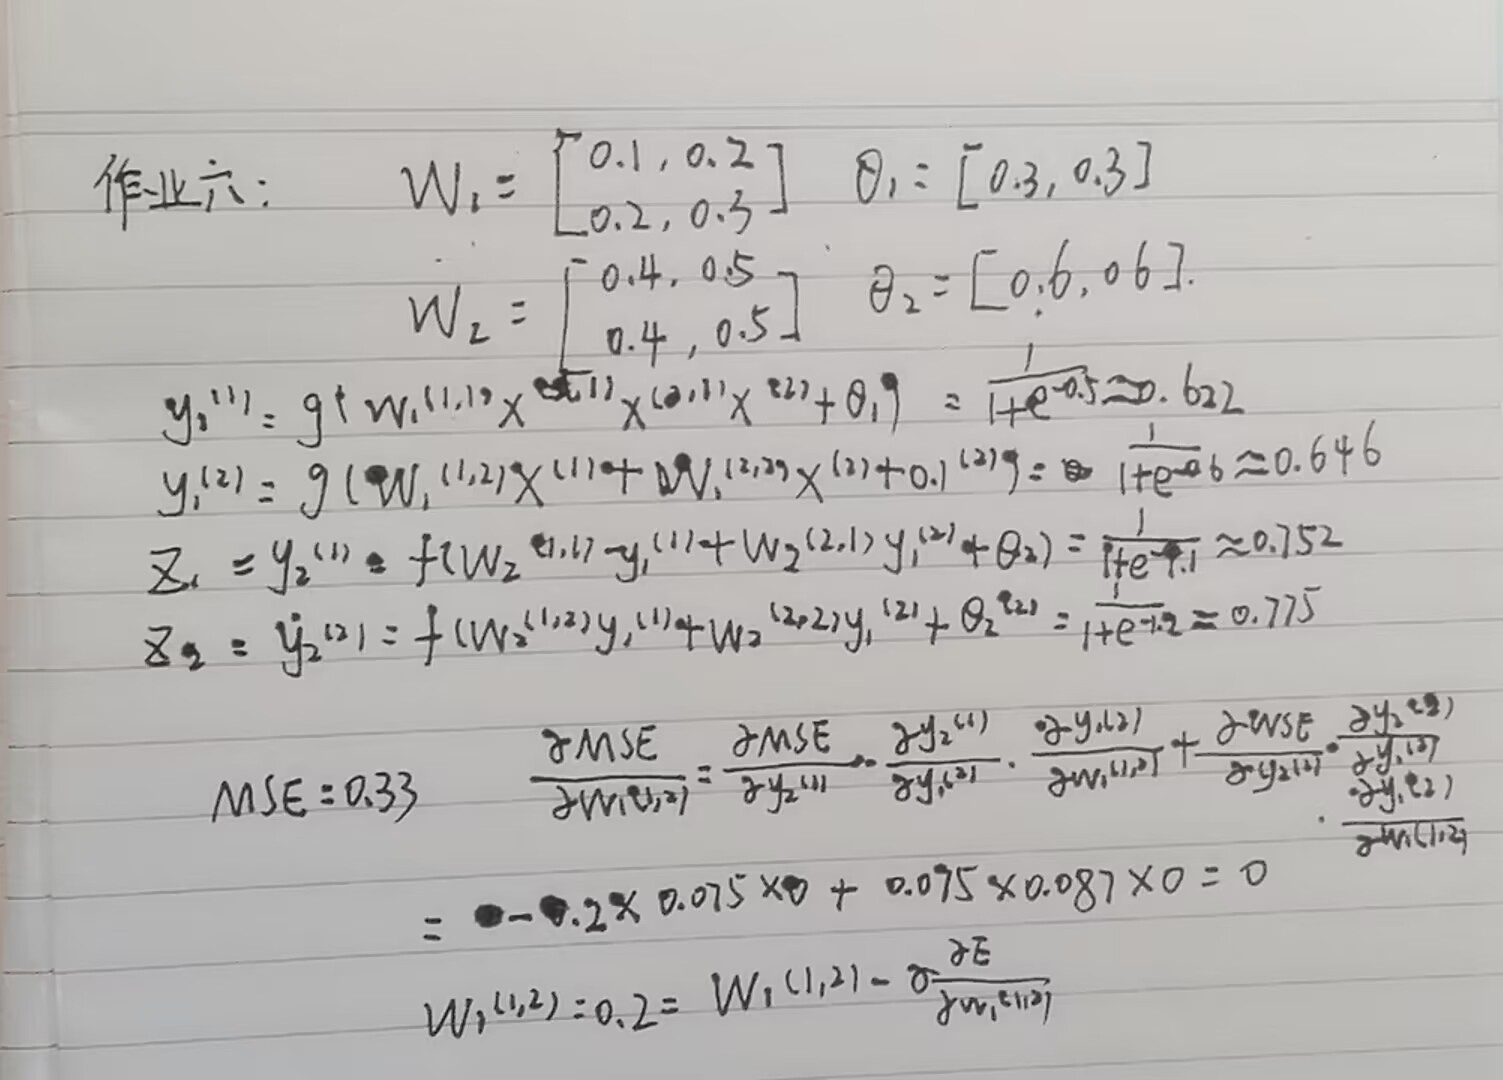 作业六: W₁ = [0.1, 0.2 θ₁ = [0.3, 0.3]
0.2, 0.3]
W₂ = [0.4, 0.5 θ₂ = [0.6, 06].
0.4, 0.5]
y₁⁽¹⁾ = g( W₁⁽¹,¹⁾ X X X⁽²⁾ + θ₁) = 1/(1+e^-0.5) ≈ 0.622
y₁⁽²⁾ = g(W₁⁽¹,²⁾X⁽¹⁾ + W₁⁽²,²⁾X⁽²⁾ + 0.1⁽²⁾) = 1/(1+e^-0.6) ≈ 0.646
Z₁ = y₂⁽¹⁾ = f(W₂⁽¹,¹⁾ y₁⁽¹⁾ + W₂⁽²,¹⁾ y₁⁽²⁾ + θ₂) = 1/(1+e^-1.1) ≈ 0.752
Z₂ = y₂⁽²⁾ = f(W₂⁽¹,²⁾y₁⁽¹⁾ + W₂⁽²,²⁾y₁⁽²⁾ + θ₂⁽²⁾ = 1/(1+e^-1.2) ≈ 0.775
MSE = 0.33 ∂MSE/∂W₁⁽¹,²⁾ = ∂MSE/∂y₂⁽¹⁾ · ∂y₂⁽¹⁾/∂y₁⁽²⁾ · ∂y₁⁽²⁾/∂W₁⁽¹,²⁾ + ∂MSE/∂y₂⁽²⁾ · ∂y₂⁽²⁾/∂y₁⁽²⁾
· ∂y₁⁽²⁾/∂W₁(1,2)
= -0.2 × 0.075 × 0 + 0.095 × 0.087 × 0 = 0
W₁⁽¹,²⁾ = 0.2 = W₁(1,2) - ∂E/∂W₁⁽¹,²⁾